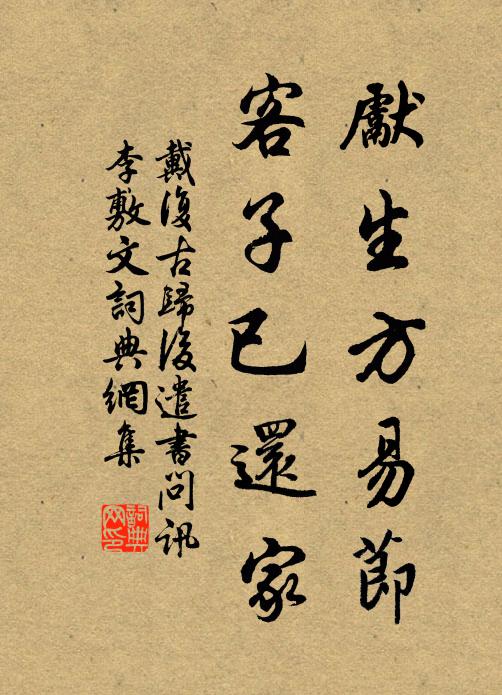 獻生方易節
客子已還家
戴復古歸後遣書問訊
李敷文詞典網集
詞典网印